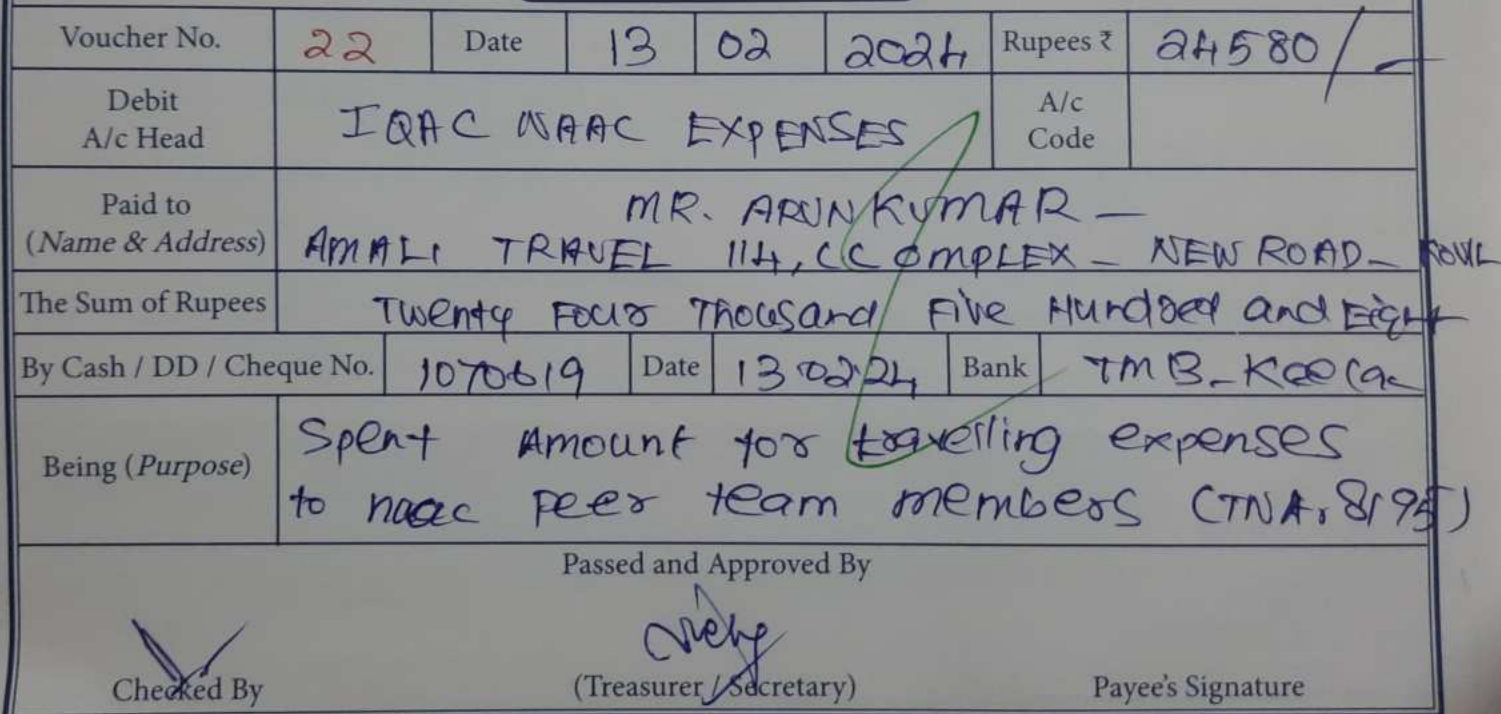 Voucher No. 22 Date 13 02 2024 Rupees ₹ 24580/-
Debit A/c Head IQAC NAAC EXPENSES A/c Code
Paid to MR. ARUNKUMAR -
(Name & Address) AMALI TRAVEL 114, CC COMPLEX - NEW ROAD -
The Sum of Rupees Twenty Four Thousand Five Hundred and Eight
By Cash / DD / Cheque No. 1070619 Date 130224 Bank TMB -
Being (Purpose) Spent Amount for travelling expenses
to naac peer team members (TNA, 8195)
Passed and Approved By
Checked By (Treasurer / Secretary) Payee's Signature